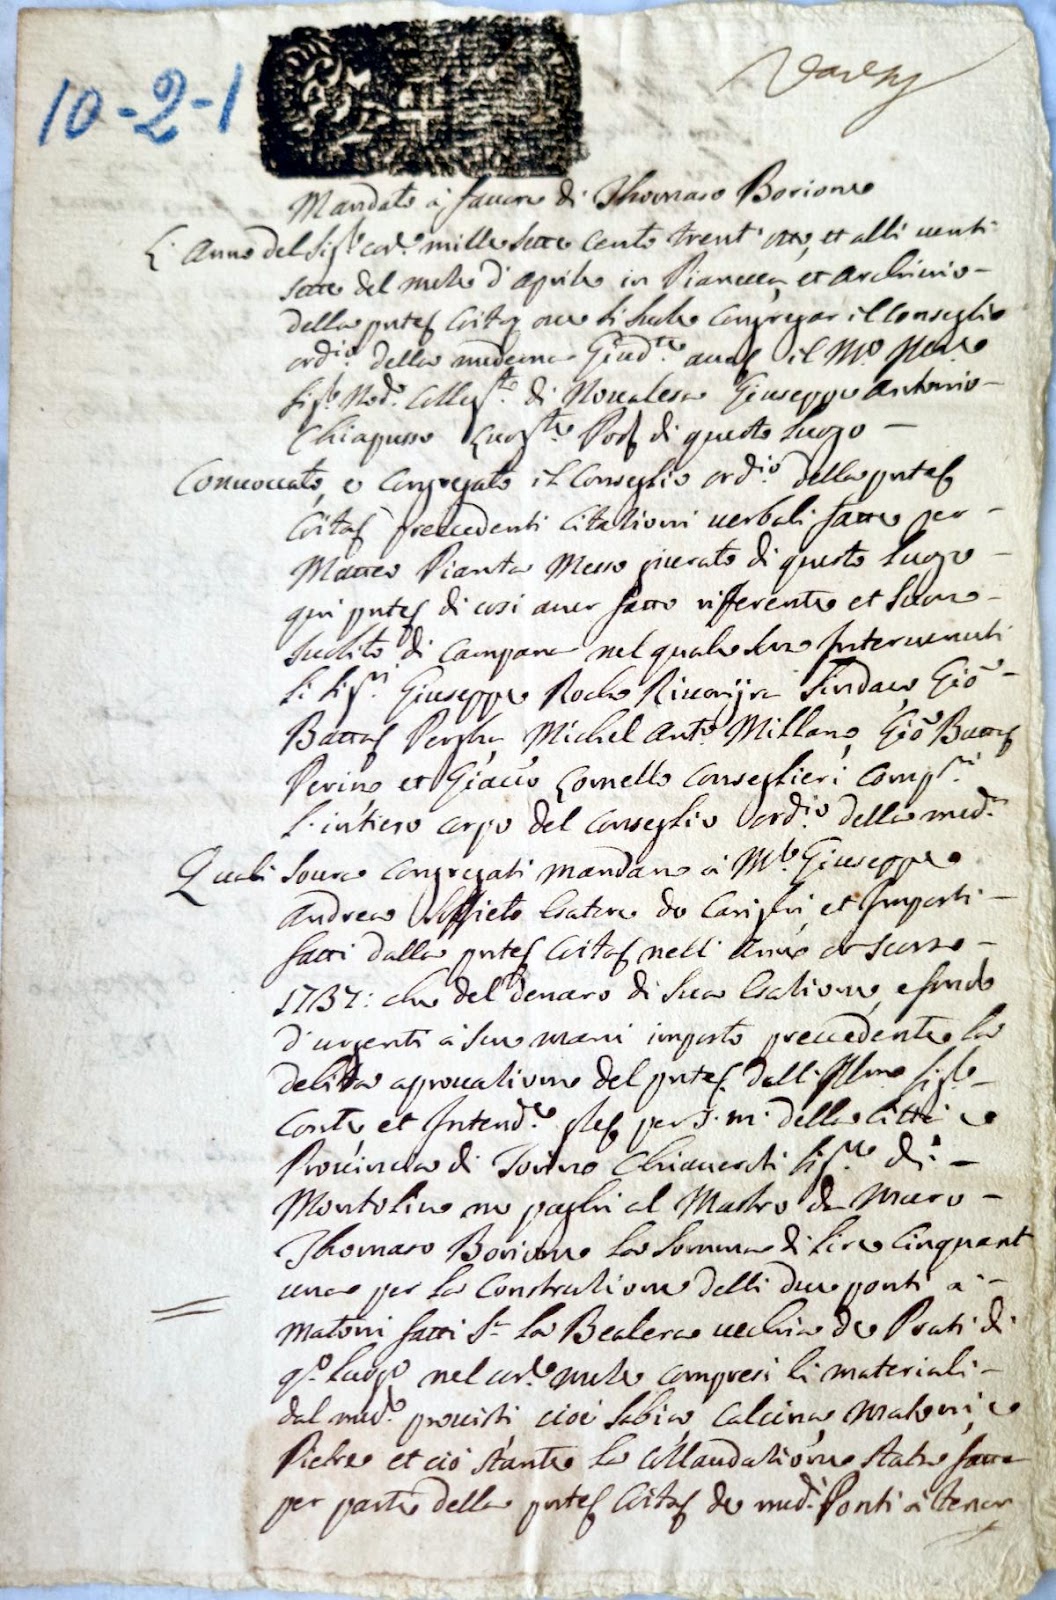 10-2-1
Mandato à favore di Thomaso Borione
L'Anno del Sig.re cor.e mille sette cento trent'otto, et alli venti
sette del mese d'Aprile in Pianezza, et Archivio
della pnte Cōità ove si suole Congregar il Conseglio
ord.io della medema Giud.te avanti il M.o
Sig.r Nod.o Colleg.to di Novalesa Giuseppe Antonio
Chiapusso Luog.te Pod.à di questo luogo
Convocato, e Congregato il Conseglio ord.io della pnte
Cōità precedenti Citationi verbali fatte per
Matteo Pianta Messo giurato di questo luogo
qui pnte di così aver fatto rifferente et suono
solito di Campana nel quale sono Intervenuti
li Sig.ri Giuseppe Rocho Sindaco, Giō
Batta Michel Ant.o Millano, Giō Batta
Perino et Giac.o Comello Conseglieri Comp.ti
l'intiero corpo del Conseglio ord.io della med.a
Quali sovra Congregati mandano à M.r Giuseppe
Andrea Esatore de Carighi et Imposti
fatti dalla pnte Cōità nell'Anno or scorso
1737: che del denaro di sua Esatione, e fondo
d'urgenti à sue mani imposto precedente la
debita aprovatione del pnte dall'Ill.mo Sig.r
Conte, et Intend.e per S. M. della Città e
Provincia di Torino Chiaverotti Sig.re di
Montolivo ne paghi al Mastro da muro
Thomaso Borione la somma di lire Cinquant
una per la Constratione delli due ponti à
Matoni fatti s.a la Bealera vechia de Prati di
q.o luogo nel cor.e mese compresi li materiali
dal med.o provisti, cioè sabia, Calcina, Matoni, e
Pietre et ciò stante la Collaudatione stata fatta
per parte della pnte Cōità de med.i Ponti à tenor